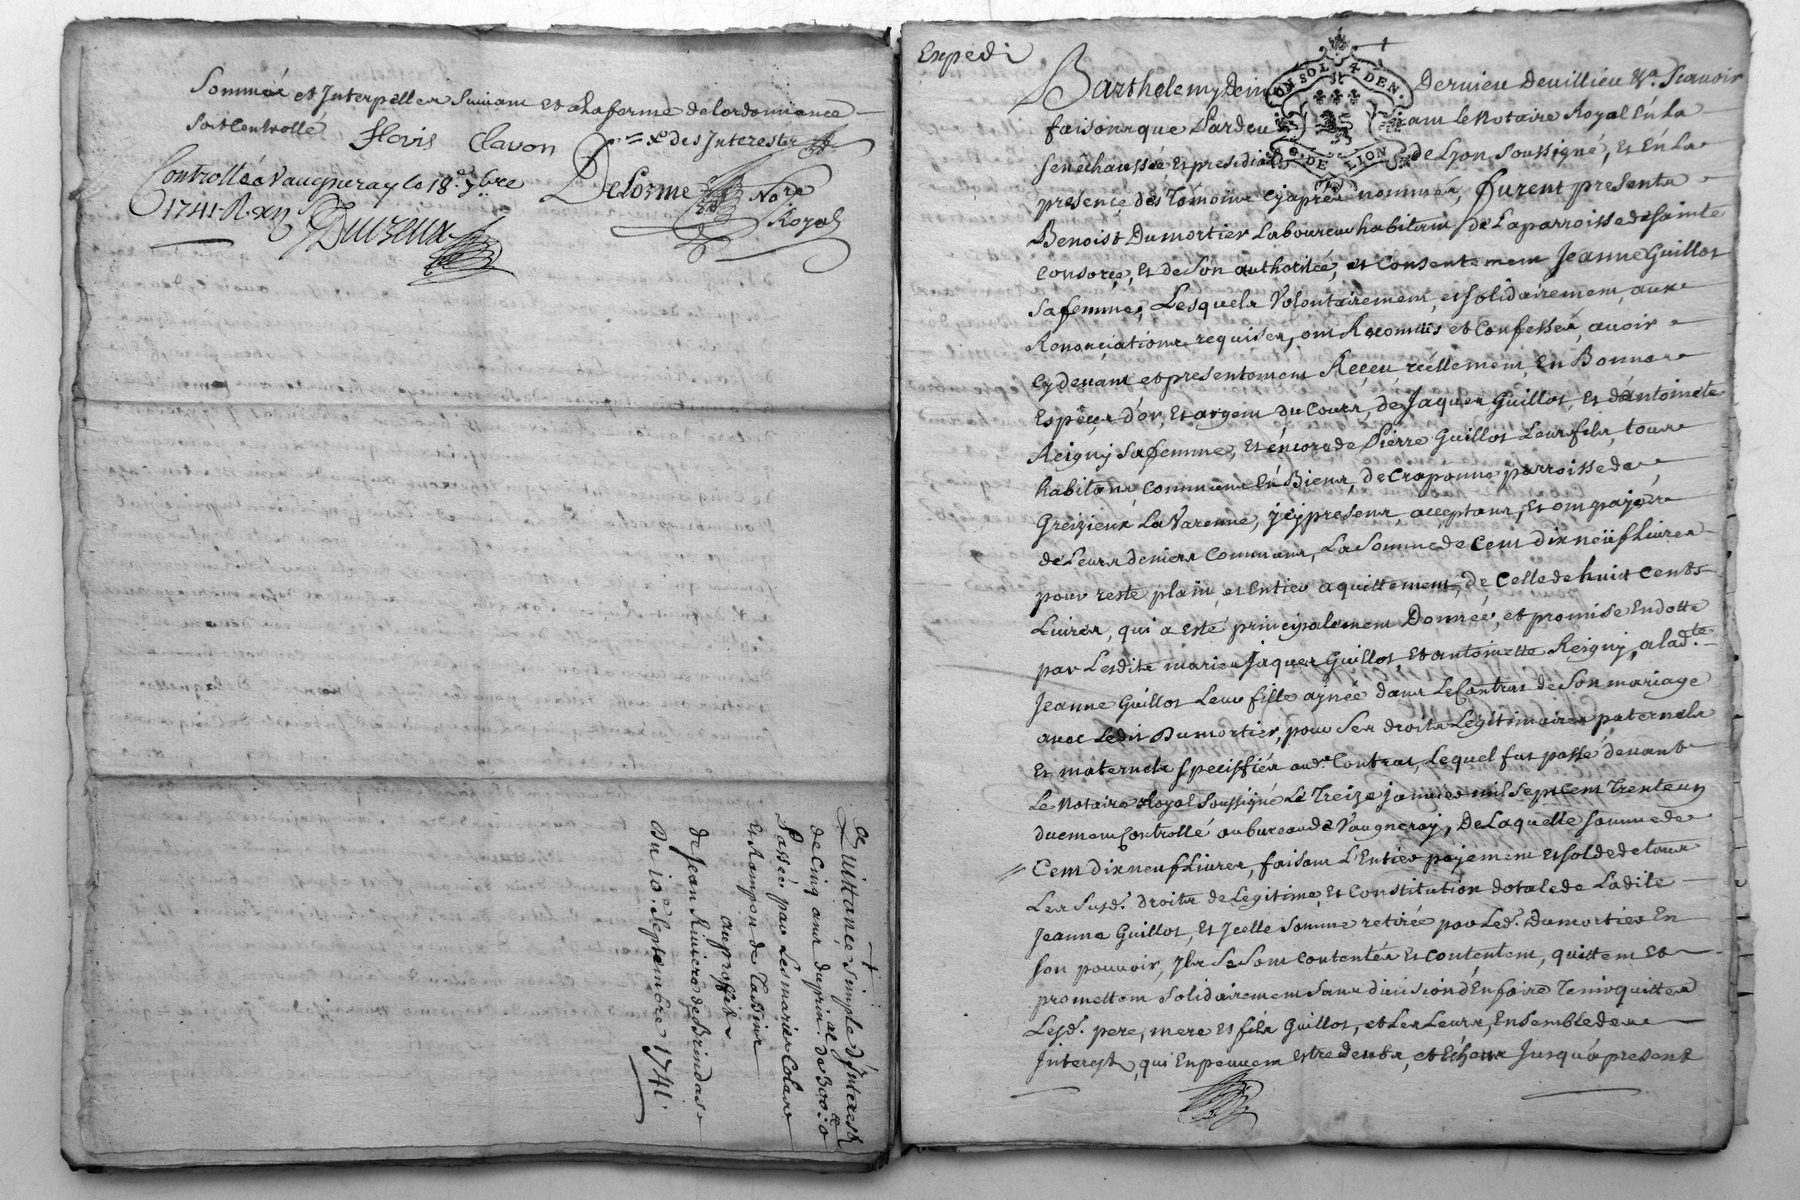 Sommés et Interpellés Suivant et a La forme de Lordonnance
Soit Controllé
Floris Clavon
des Interests
Controllé a Vaugneray le 18e 7bre
1741. R. xij s
Delorme Nore
Royal
Duizeux
Quittance simple d'Interest
de Cinq ans du prin.al de 300 #
Passée par Les mariés Colard
et Rampon de Tassin
au proffit
de Jean Riviere de Brindas
Du 10e Septembre 1741.
Expedi
UN SOL 4 DEN.
G. DE LION
Barthelemy Deni Dervieu Devillieu &a. Scavoir
faisons que Pardevant Le Notaire Royal En La
Senechaussée et presidial de Lyon Soussigné, et En La
presence des Témoins cy après nommés, furent presents
Benoist Dumortier Laboureur habitant de La parroisse de Sainte
Consorce, et de Son authorité, et Consentement Jeanne Guillot
Sa femme, Lesquels Volontairement, et solidairement, aux
Renonciations requises, ont Reconnus et Confessés, avoir
Cy devant et presentement Reçeu, réellement, En Bonnes
Espéçes d'or, Et argent du Cours, de Jaques Guillot, Et d'antoinette
Reigny Sa femme, Et encore de Pierre Guillot Leur fils, tous
habitans, Communs En Biens, de Craponne parroisse de
Greizieux La Varenne, jcy presens, acceptans, Et ont payés
de Leurs deniers Communs, La Somme de Cent dix neüf Livres
pour reste plain, et Entier aquittement, de Celle de huict Cents
Livres, qui a Esté principalement Donnée, et promise En dotte
par Lesdits mariés Jaques Guillot, Et antoinette Reigny, a lad.te
Jeanne Guillot Leur fille aynée dans Le Contrat de Son mariage
avec Ledit Dumortier, pour Ses droits Légitimaires paternels
Et maternels specifiés aud.t Contrat, Lequel fut passé devant
Le Notaire Royal Soussigné Le Treize janvier mil Sept Cent Trente un
duement Controllé au bureau de Vaugneray, De Laquelle Somme de
Cent dix neuf Livres, faisant L'Entier payement Et solde de tous
Les Susd. droits de Légitime, Et Constitution dotale de Ladite
Jeanne Guillot, Et Jcelle Somme retirée par Led. Dumortier En
Son pouvoir, jls Se Sont Contentés Et Contentent, quittent Et
promettent Solidairement Sans division d'En faire Tenir quittes
Lesd. pere, mere et fils Guillot, et Les Leurs, Ensemble des
Interests, qui En peuvent Estre deubs, et Echeus Jusqu'a present